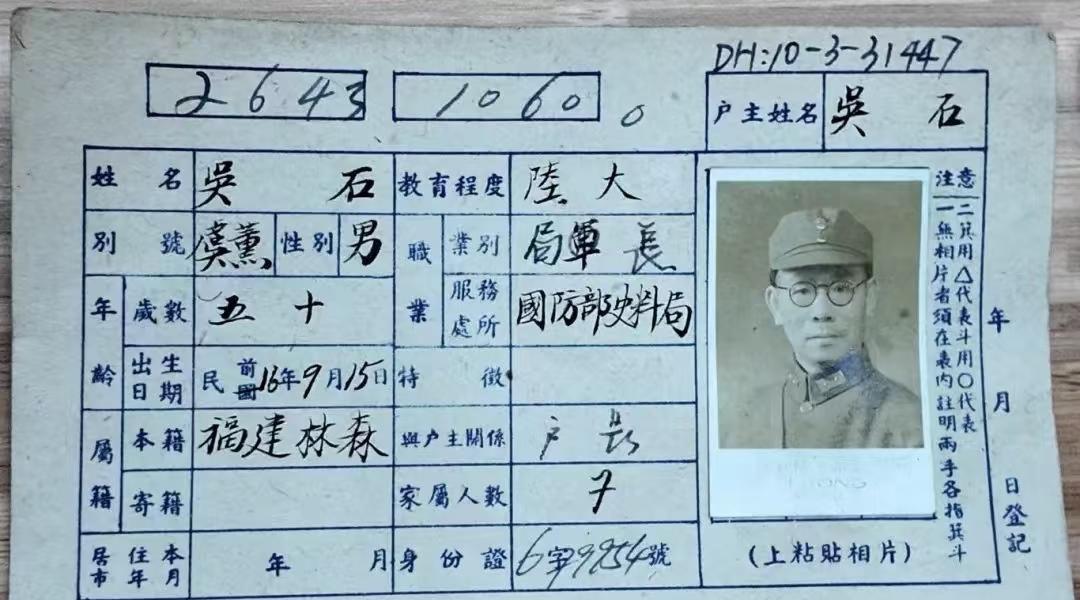 DH:10-3-31447
2643 1060 0
户主姓名 吳石
姓名 吳石 教育程度 陸大
別號 虞薰 性別 男 職業 業別 局軍長
年齡 歲數 五十 服務處所 國防部史料局
出生日期 民前國16年9月15日 特徵
屬籍 本籍 福建林森 與户主關係 户長
寄籍 家屬人數 7
居住本市年月 年 月 身份證 6字9854號
注意
一無相片者須在表內註明兩手各指箕斗
二箕用△代表斗用○代表
(上粘貼相片)
年 月 日登記